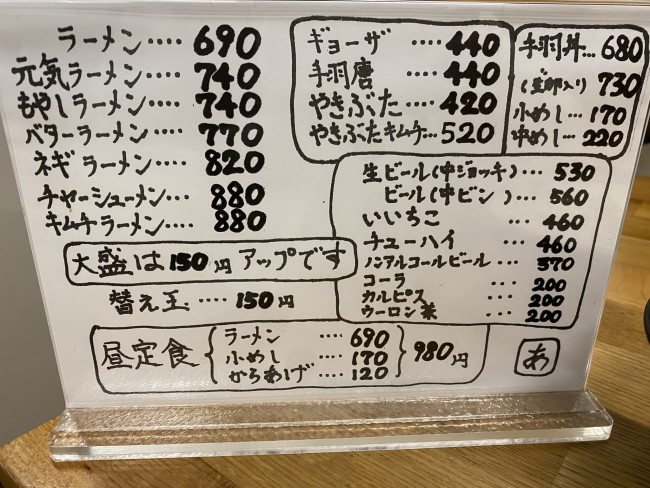 ラーメン‥‥ 690
元気ラーメン‥‥ 740
もやしラーメン‥‥ 740
バターラーメン‥‥ 770
ネギラーメン‥‥ 820
チャーシューメン‥‥ 880
キムチラーメン‥‥ 880
大盛は150円アップです
替え玉‥‥150円
ギョーザ ‥‥440
手羽唐 ‥‥440
やきぶた‥‥420
やきぶたキムチ‥520
手羽丼‥680
(生卵入り)730
小めし‥170
中めし‥220
生ビール(中ジョッキ)‥530
ビール(中ビン)‥560
いいちこ ‥460
チューハイ ‥460
ノンアルコールビール ‥370
コーラ ‥200
カルピス ‥200
ウーロン茶 ‥200
昼定食
ラーメン ‥‥690
小めし ‥‥170
からあげ‥‥120
980円
あ